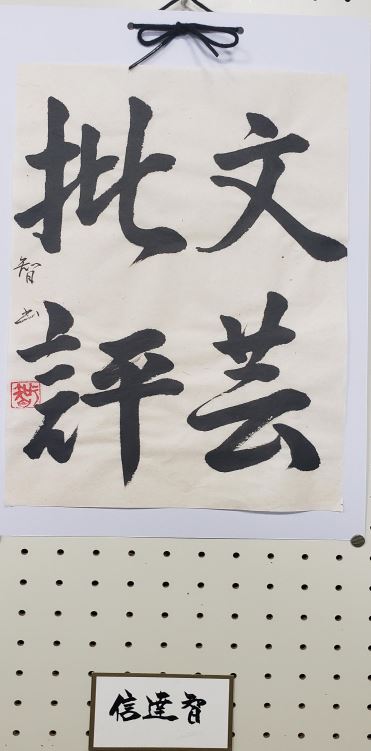 文芸
批評
智書
信達智